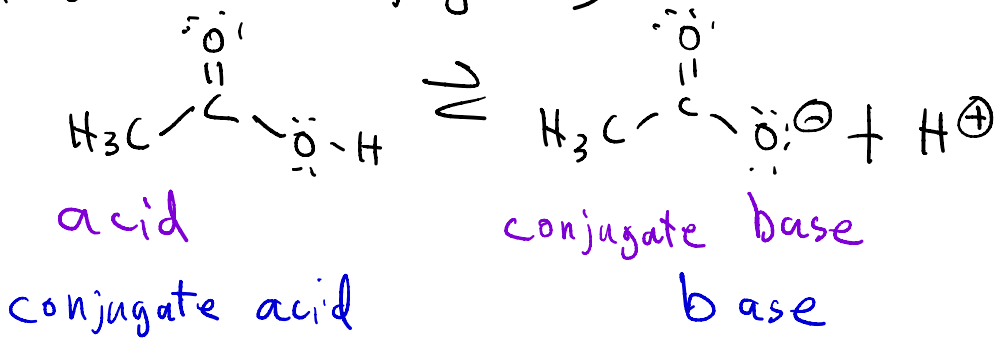 O O
H3C C O-H ⇌ H3C C O⊖ + H⊕
acid conjugate base
conjugate acid base